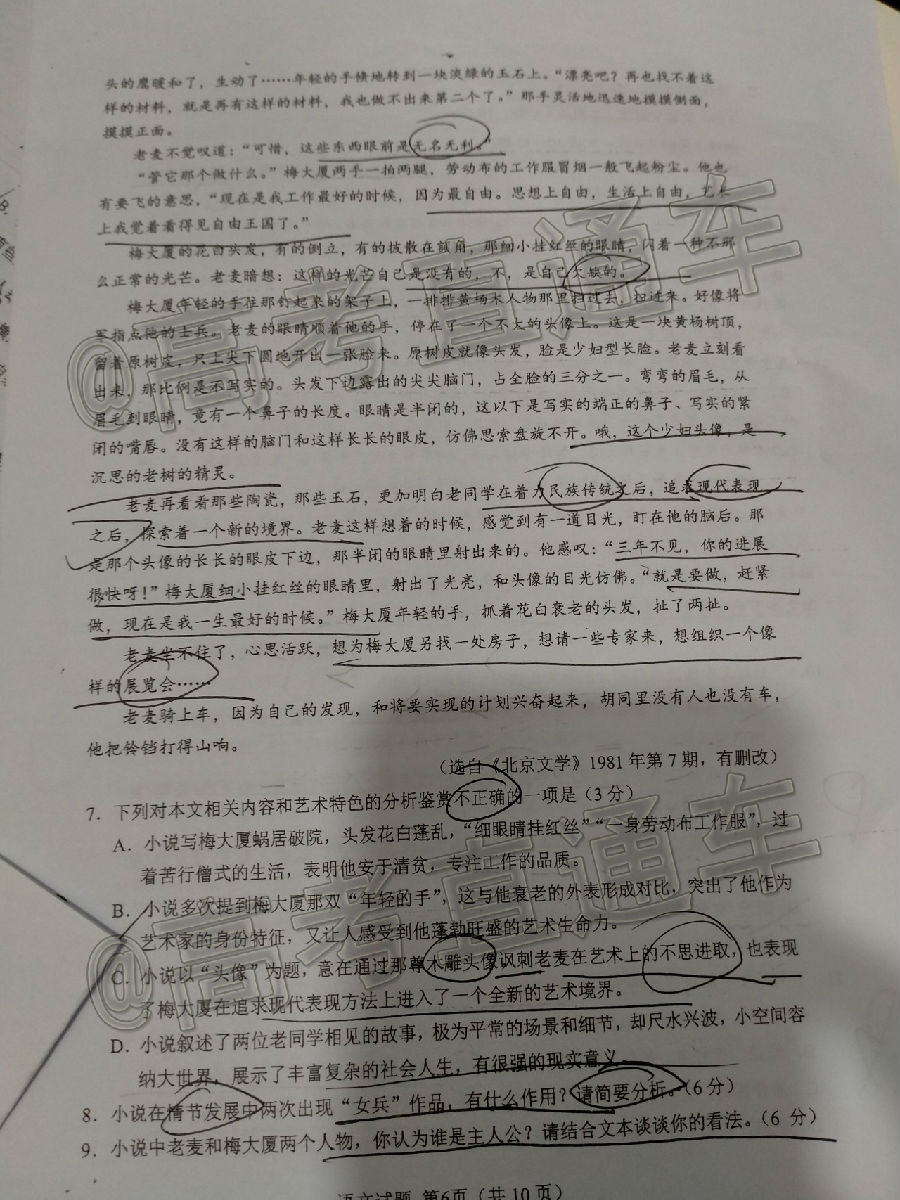 头的鹰暖和了，生动了……年轻的手倏地转到一块淡绿的玉石上。“漂亮吧？再也找不着这
样的材料，就是再有这样的材料，我也做不出来第二个了。”那手灵活地迅速地摸摸侧面，
摸摸正面。
老麦不觉叹道：“可惜，这些东西眼前是无名无利。”
“管它那个做什么。”梅大厦两手一拍两腿，劳动布的工作服冒烟一般飞起粉尘。他也
有要飞的意思，“现在是我工作最好的时候，因为最自由。思想上自由，生活上自由，艺术
上我觉着看得见自由王国了。”
梅大厦的花白头发，有的倒立，有的披散在额角，那细小挂红丝的眼睛，闪着一种不那
么正常的光芒。老麦暗想：这样的光芒自己是没有的，不，是自己欠缺的。
梅大厦年轻的手往那钉起来的架子上，一排排黄杨木人物那里扫过去，扫过来。好像将
军指点他的士兵。老麦的眼睛顺着他的手，停在了一个不大的头像上。这是一块黄杨树顶，
留着原树皮，只上尖下圆地开出一张脸来。原树皮就像头发，脸是少妇型长脸。老麦立刻看
出来，那比例是不写实的。头发下边露出的尖尖脑门，占全脸的三分之一。弯弯的眉毛，从
眉毛到眼睛，竟有一个鼻子的长度。眼睛是半闭的，这以下是写实的端正的鼻子、写实的紧
闭的嘴唇。没有这样的脑门和这样长长的眼皮，仿佛思索盘旋不开。哦，这个少妇头像，是
沉思的老树的精灵。
老麦再看看那些陶瓷，那些玉石，更加明白老同学在着力民族传统之后，追求现代表现
之后，探索着一个新的境界。老麦这样想着的时候，感觉到有一道目光，盯在他的脑后。那
是那个头像的长长的眼皮下边，那半闭的眼睛里射出来的。他感叹：“三年不见，你的进展
很快呀！”梅大厦细小挂红丝的眼睛里，射出了光亮，和头像的目光仿佛。“就是要做，赶紧
做，现在是我一生最好的时候。”梅大厦年轻的手，抓着花白衰老的头发，扯了两扯。
老麦坐不住了，心思活跃，想为梅大厦另找一处房子，想请一些专家来，想组织一个像
样的展览会……
老麦骑上车，因为自己的发现，和将要实现的计划兴奋起来，胡同里没有人也没有车，
他把铃铛打得山响。
（选自《北京文学》1981年第7期，有删改）
7．下列对本文相关内容和艺术特色的分析鉴赏不正确的一项是（3分）
A．小说写梅大厦蜗居破院，头发花白蓬乱，“细眼睛挂红丝”“一身劳动布工作服”，过
着苦行僧式的生活，表明他安于清贫，专注工作的品质。
B．小说多次提到梅大厦那双“年轻的手”，这与他衰老的外表形成对比，突出了他作为
艺术家的身份特征，又让人感受到他蓬勃旺盛的艺术生命力。
C．小说以“头像”为题，意在通过那尊木雕头像讽刺老麦在艺术上的不思进取，也表现
了梅大厦在追求现代表现方法上进入了一个全新的艺术境界。
D．小说叙述了两位老同学相见的故事，极为平常的场景和细节，却尺水兴波，小空间容
纳大世界，展示了丰富复杂的社会人生，有很强的现实意义。
8．小说在情节发展中两次出现“女兵”作品，有什么作用？请简要分析。（6分）
9．小说中老麦和梅大厦两个人物，你认为谁是主人公？请结合文本谈谈你的看法。（6 分）
语文试题 第6页（共10页）
@高考直通车
@高考直通车